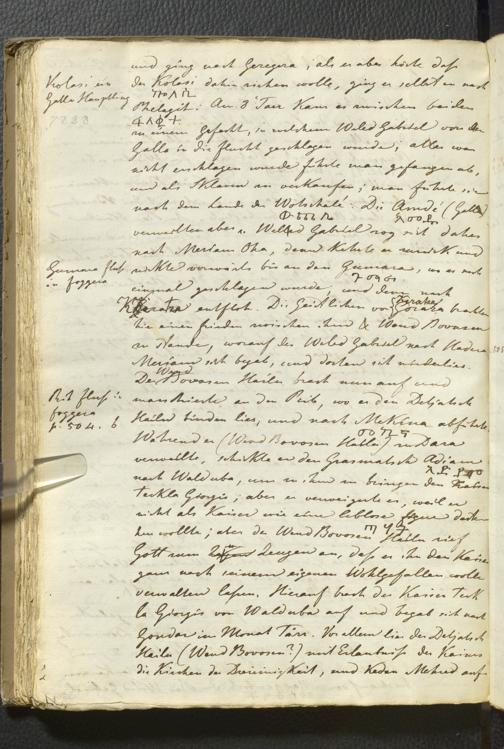 und ging nach Geregera; als er aber hörte daß
Kolasi ein
Galla Häuptling
der Kolasi dahin rücken wolle, ging er selbst nach
Phelagit: Am 3 Tarr kam es zwischen beiden
zu einem Gefecht, in welchem Weled Gabriel von den
Galla in die flucht geschlagen wurde; alles was
nicht erschlagen wurde führte man gefangen ab,
und als Sklaven zu verkaufen; man führte sie
nach dem Lande der Wotschalé. Die Amdé (Galla)
verweilten aber. Weled Gabriel zog sich daher
nach Meriam Oha, dann kehrte er zurück und
Gumara fluß
in foggera
rückte vorwärts bis an den Gumara, wo er noch
einmal geschlagen wurde, und dann nach
Keratza entfloh. Die Geistlichen von Goratza brachten
hier einen frieden zwischen ihm & Wend Bowosen
zu Stande, worauf der Weled Gabriel nach Madera
Meriam sich begab, und dorten sich niederlies.
Der Wend Bowosen Hailu brach nun auf und
Rib fluß in
foggera
p. 504. 6
marschierte an den Reib, wo er den Detjatsch
Hailu binden lies, und nach Mekena abführte
Während er (Wend Bowosen Hailu) in Dara
verweilte, schickte er den Grasmatsch Adjam
nach Walduba, um zu ihm zu bringen den Kaiser
Teckla Giorgis; aber er verweigerte es, weil er
nicht als Kaiser wie eine leblose figur dastehen
wollte; aber der Wend Bowosen Hailu rief
Gott zum Zeugen an, daß er ihn den Kaiser
ganz nach seinem eigenen Wohlgefallen wolle
verwalten laßen. Hierauf brach der Kaiser Teck
la Giorgis von Walduba auf und begab sich nach
Gondar im Monat Tärr. Vor allem lies der Detjatsch
Hailu (Wend Bowosen?) mit Erlaubniß des Kaisers
die Kirchen der Dreieinigkeit, und Kedan Mehred auf